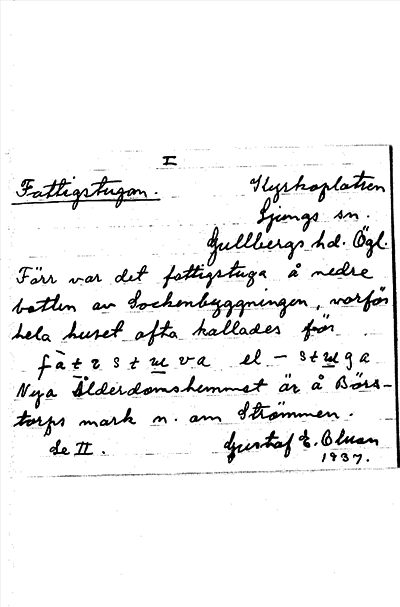 I
Fattigstugan. Kyrkoplatsen
Ljungs sn.
Gullbergs hd. Ögl.
Förr var det fattigstuga å nedre
botten av Sockenbyggningen, varför
hela huset ofta kallades för
fàtɩstɯva el - stɯga
Nya Ålderdomshemmet är å Börs-
torps mark n. om Strömmen.
Se II. Gustaf E. Olsson
1937.